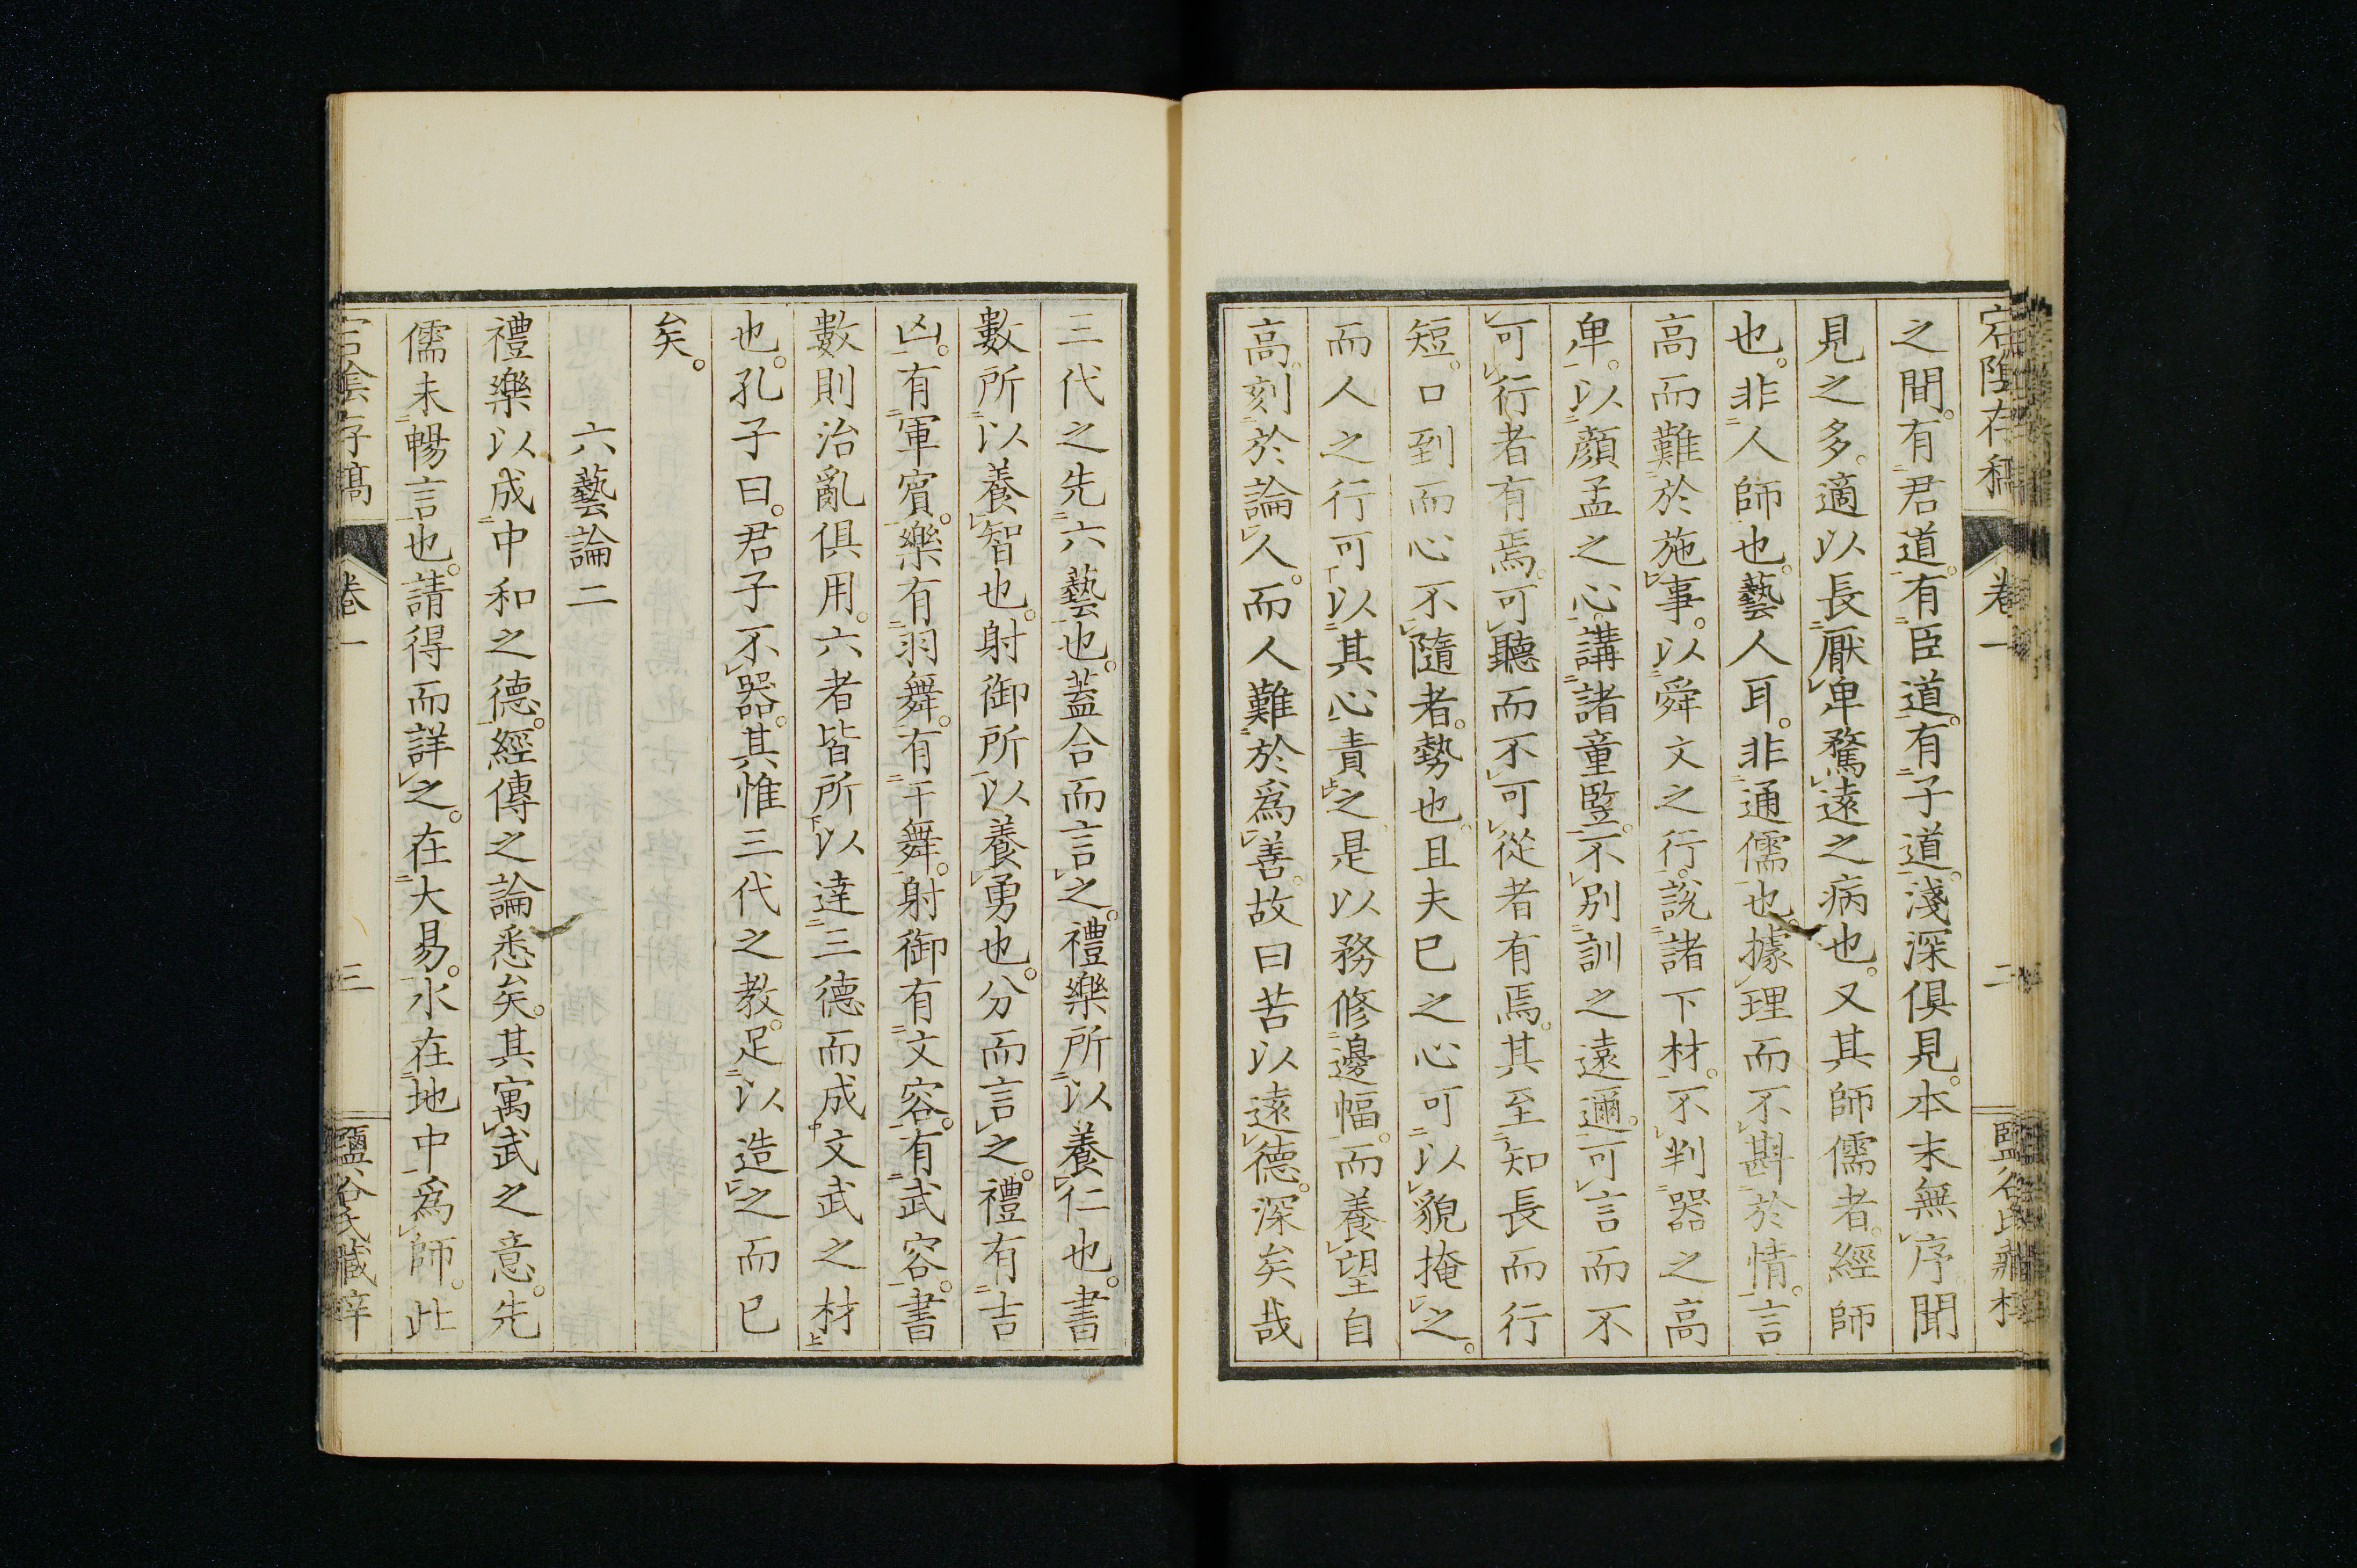 宕陰存稿 卷一 二
之間。有君道。有臣道。有子道。淺深俱見。本末無序。聞
見之多。適以長厭卑騖遠之病也。又其師儒者。經師
也。非人師也。藝人耳。非通儒也。據理而不斟於情。言
高而難於施事。以舜文之行。說諸下材。不判器之高
卑。以顏孟之心。講諸童豎。不別訓之遠邇。可言而不
可行者有焉。可聽而不可從者有焉。其至知長而行
短。口到而心不隨者。勢也。且夫己之心可以貌掩之。
而人之行可以其心責之。是以務修邊幅。而養望自
高。刻於論人。而人難於爲善。故曰苦以遠德。深矣哉
三代之先六藝也。蓋合而言之。禮樂所以養仁也。書
數所以養智也。射御所以養勇也。分而言之。禮有吉
凶。有軍賓。樂有羽舞。有干舞。射御有文容。有武容。書
數則治亂俱用。六者皆所以達三德而成文武之材
也。孔子曰。君子不器。其惟三代之教。足以造之而已
矣。
六藝論二
禮樂以成中和之德。經傳之論悉矣。其寓武之意。先
儒未暢言也。請得而詳之。在大易。水在地中爲師。此
宕陰存稿 卷一 三 鹽谷氏藏梓